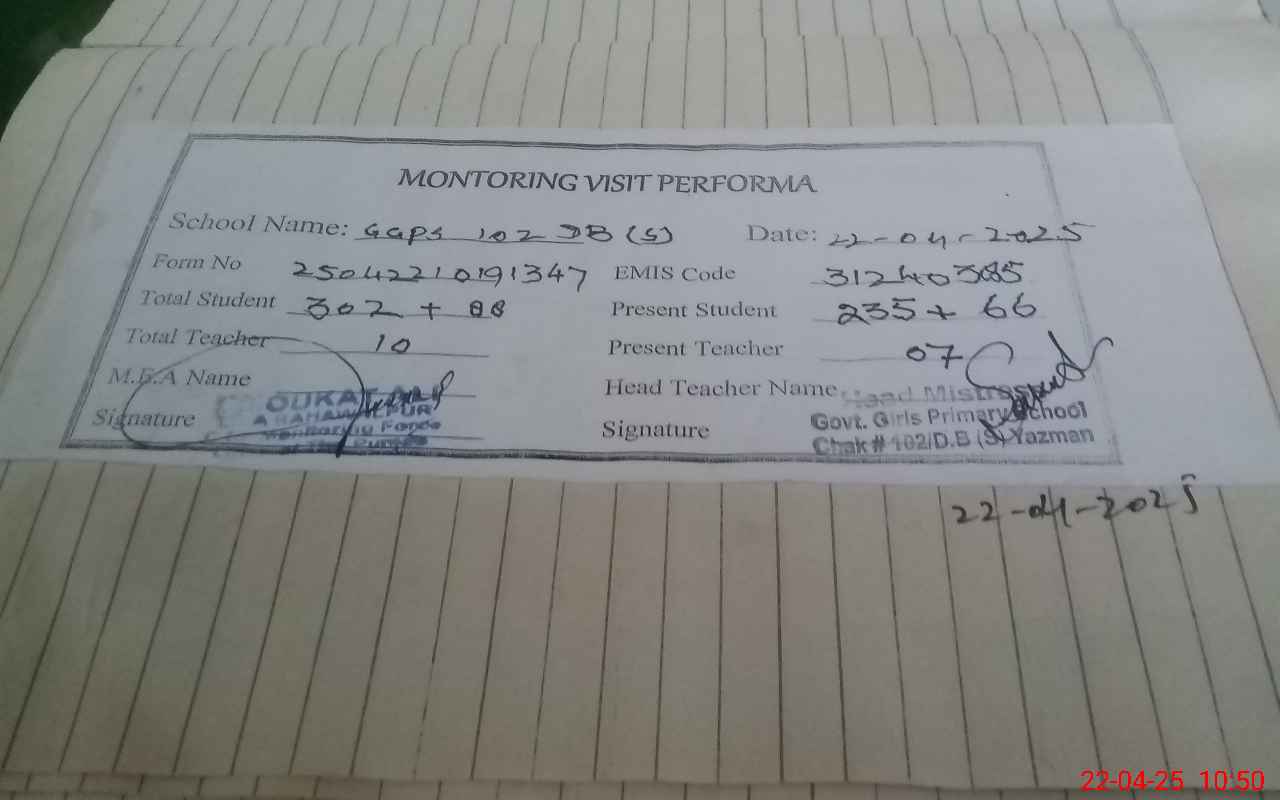 MONTORING VISIT PERFORMA
School Name: GGPS 102 DB (S) Date: 22-04-2025
Form No 25042210191347 EMIS Code 31240385
Total Student 302 + 88 Present Student 235 + 66
Total Teacher 10 Present Teacher 07
M.E.A Name Head Teacher Name
OUKAT ALI
Head Mistress
Signature Signature
Govt. Girls Primary School
Chak # 102/D.B (S) Yazman
22-04-2025
22-04-25 10:50